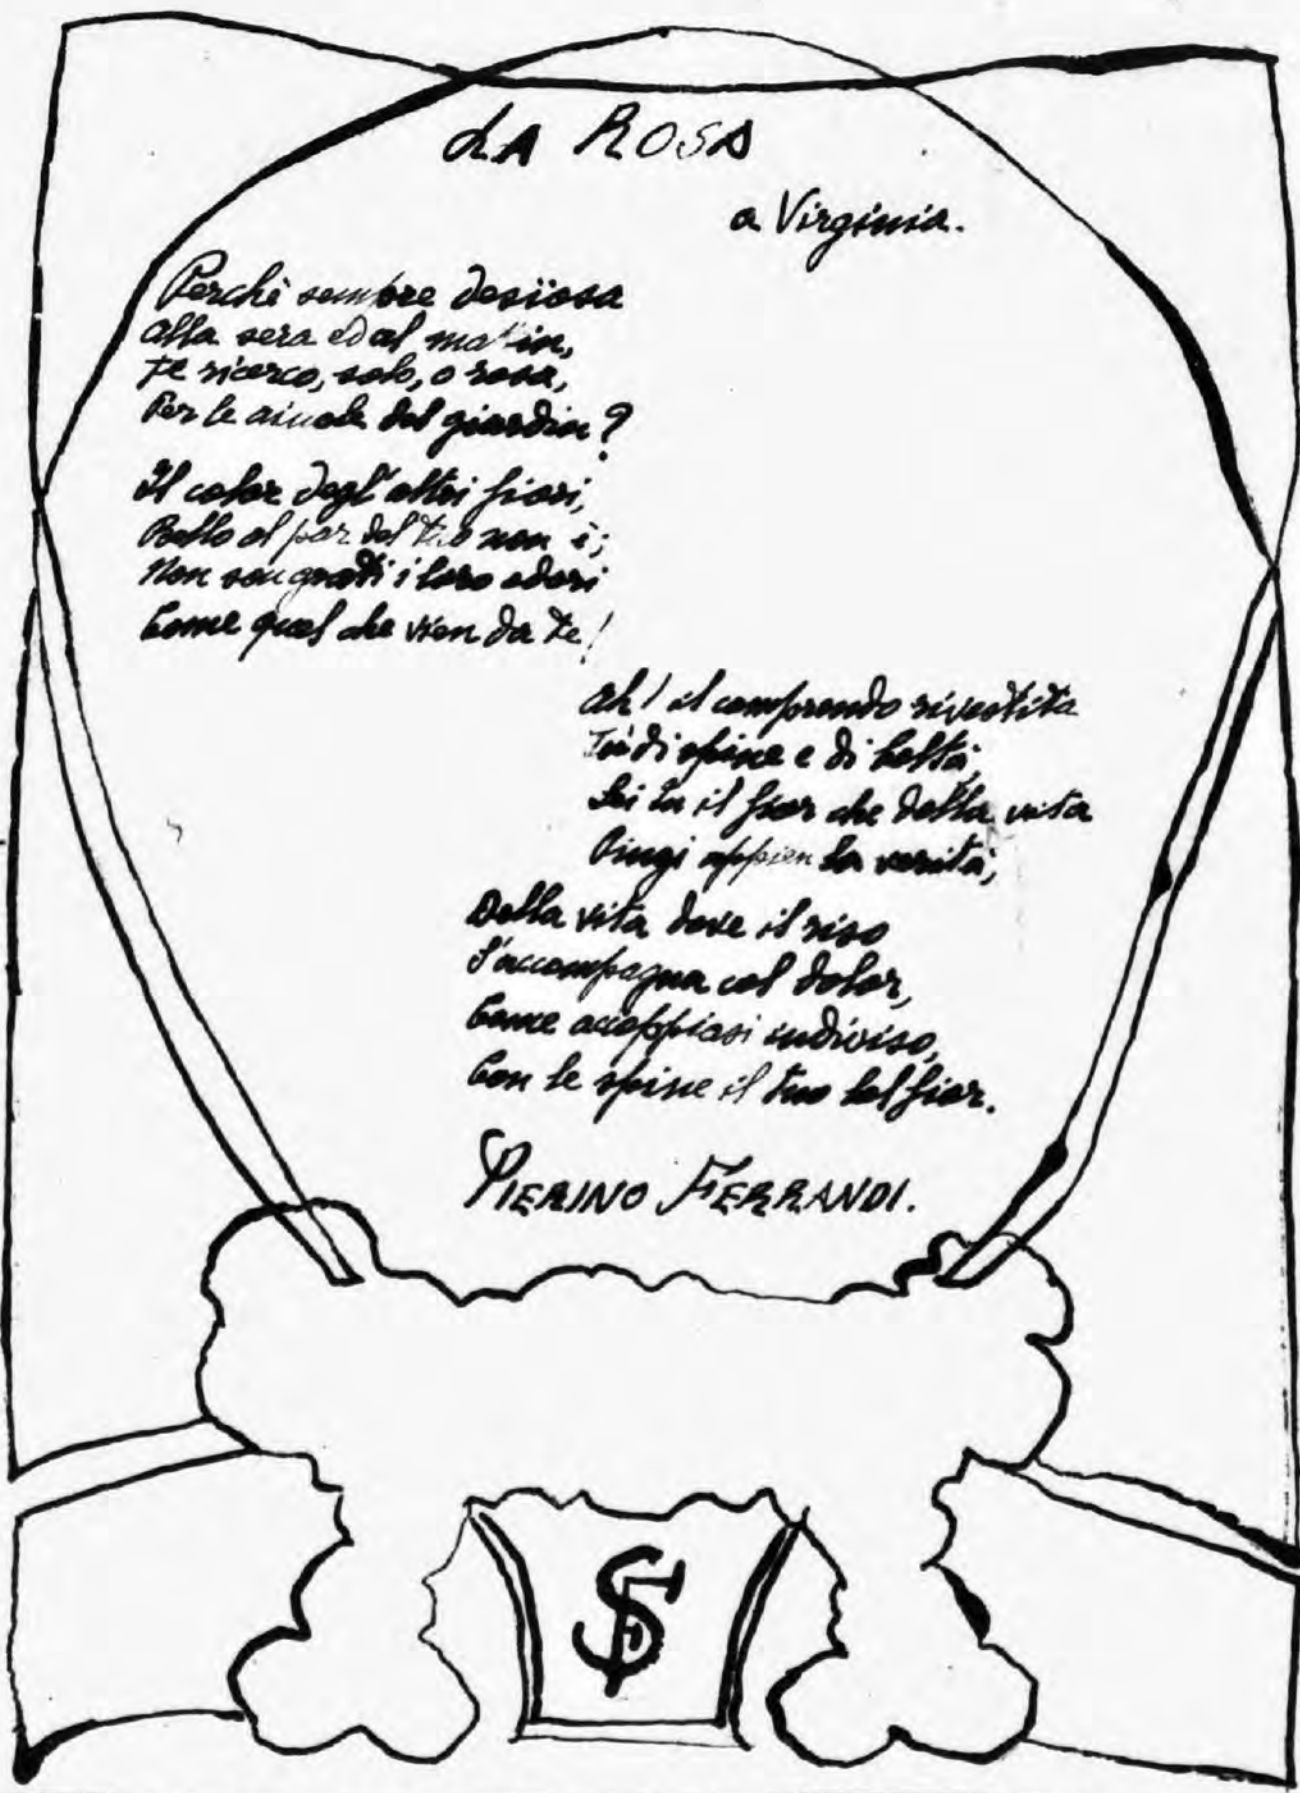 LA ROSA
a Virginia.
Perchè sempre desïosa
Alla sera ed al mattin,
Te ricerco, solo, o rosa,
Per le aiuole del giardin?
Il color degl'altri fiori,
Bello al par del tuo non è;
Non son grati i loro odori
Come quel che vien da te!
Ah! il comprendo rivestita
Tu di spine e di beltà,
Sei tu il fior che della vita
Pingi appien la verità;
Della vita dove il riso
S'accompagna col dolor,
Come accoppiasi indiviso,
Con le spine il tuo bel fior.
PIERINO FERRANDI.